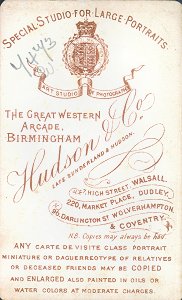 SPECIAL STUDIO FOR LARGE PORTRAITS.
4443
ART STUDIO PHOTOGRAPHIC
THE GREAT WESTERN
ARCADE,
BIRMINGHAM
Hudson & Co
LATE SUNDERLAND & HUDSON.
HIGH STREET, WALSALL,
220, MARKET PLACE, DUDLEY,
96, DARLINGTON ST WOLVERHAMPTON,
& COVENTRY.
N.B. Copies may always be had
ANY CARTE DE VISITE CLASS PORTRAIT
MINIATURE OR DAGUERREOTYPE OF RELATIVES
OR DECEASED FRIENDS MAY BE COPIED
AND ENLARGED ALSO PAINTED IN OILS OR
WATER COLORS AT MODERATE CHARGES.